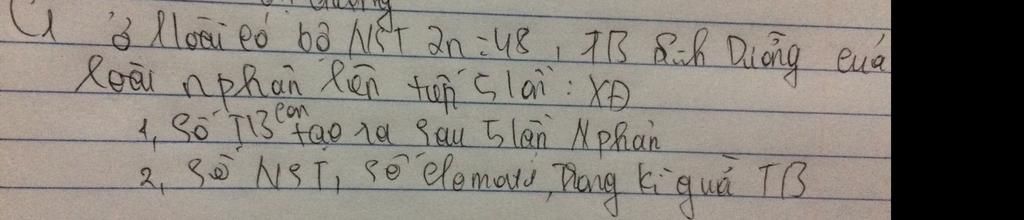 C1 ở Loài có bộ NST 2n = 48, TB Sinh Dưỡng của
Loài nphân liên tiếp 5 lần: XĐ
1, Số TB con tạo ra sau 5 lần Nphân
2, Số NST, Số Cromatit, Trong kì giữa TB